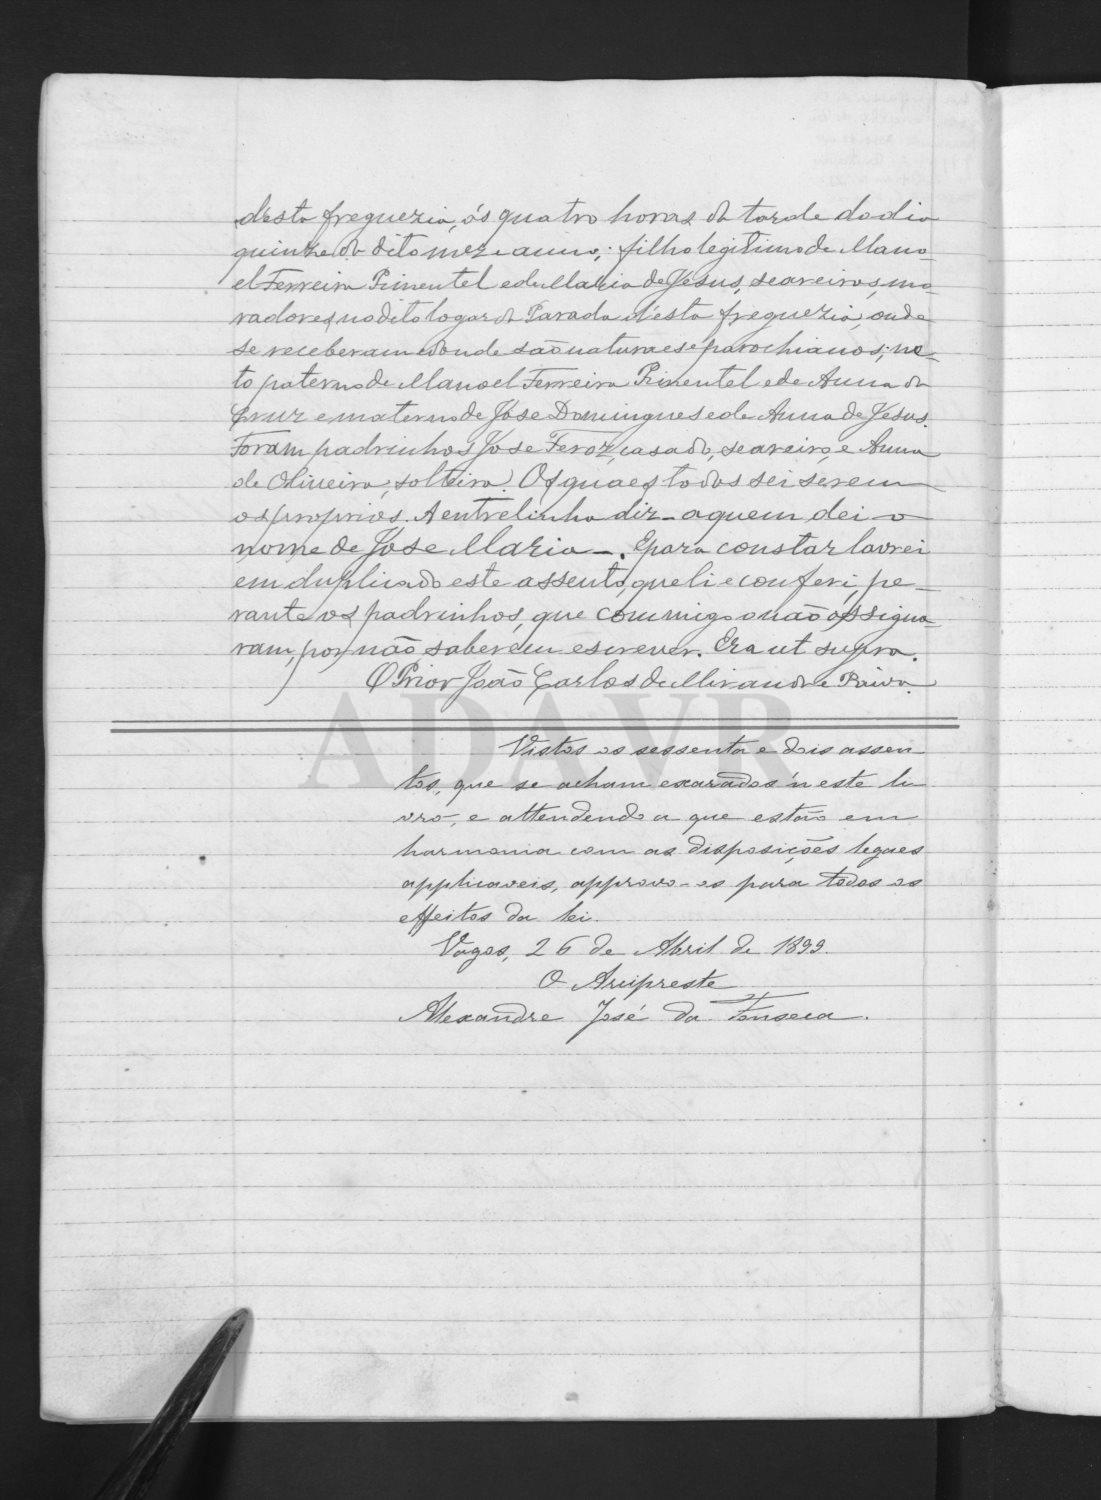 d'esta freguezia, ás quatro horas da tarde do dia
quinze do dito mez e anno; filho legitimo de Mano-
el Ferreira Pimentel e de Maria de Jesus, seareiros, mo-
radores, no dito logar da Parada d'esta freguezia, onde
se receberam e donde são naturaes e parochianos; ne-
to paterno de Manoel Ferreira Pimentel e de Anna da
Cruz e materno de Jose Domingues e de Anna de Jesus.
Foram padrinhos Jose Feroz, casado, seareiro, e Anna
de Oliveira, solteira. Os quaes todos sei serem
os proprios. A entrelinha diz - a quem dei o
nome de Jose Maria -. E para constar lavrei
em duplicado este assento, que li e conferi, pe-
rante os padrinhos, que commigo o não assigna-
ram, por não saberem escrever. Era ut supra.
O Prior João Carlos de Miranda e Paiva.
ADAVR
Vistos os sessenta e dois assen
tos, que se acham exarados n'este li
vro, e attendendo a que estão em
harmonia com as disposições legaes
applicaveis, approvo-os para todos os
effeitos da lei.
Vagos, 26 de Abril de 1899.
O Arcipreste
Alexandre José da Fonseca.